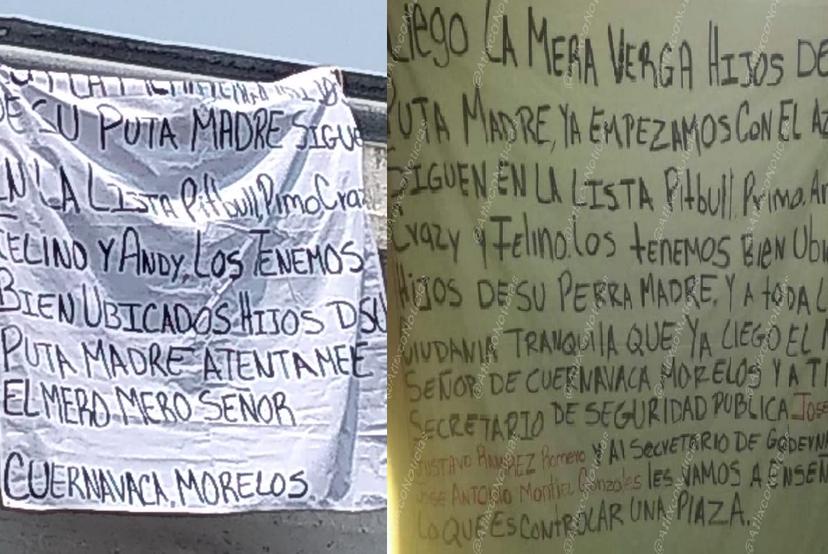 DE SU PUTA MADRE SIGUE
EN LA LISTA Pitbull, Pimo, Craz
FELINO Y ANDY, LOS TENEMOS
BIEN UBICADOS HIJOS D SU
PUTA MADRE ATENTAMEE
EL MERO MERO SEÑOR
CUERNAVACA, MORELOS.
LLego LA MERA VERGA HIJOS DE
PUTA MADRE, YA EMPEZAMOS CON EL AZ
SIGUEN EN LA LISTA Pitbull, Primo, An
Crazy y Felino. Los tenemos Bien Ubi
HIJOS DE SU PERRA MADRE, Y A toda L
CIUDADANIA TRANQUILA QUE YA LLEGO EL
SEÑOR DE CUERNAVACA MORELOS Y A TI
SECRETARIO DE SEGURIDAD PUBLICA Jose
GUSTAVO RAMIREZ Romero Y Al SECRETARIO DE GOBERN
JOSE ANTONIO Montiel Gonzales les VAMOS A ENSEÑ
LO QUE ES CONTROLAR UNA PLAZA.
@AtlixcoNoticias